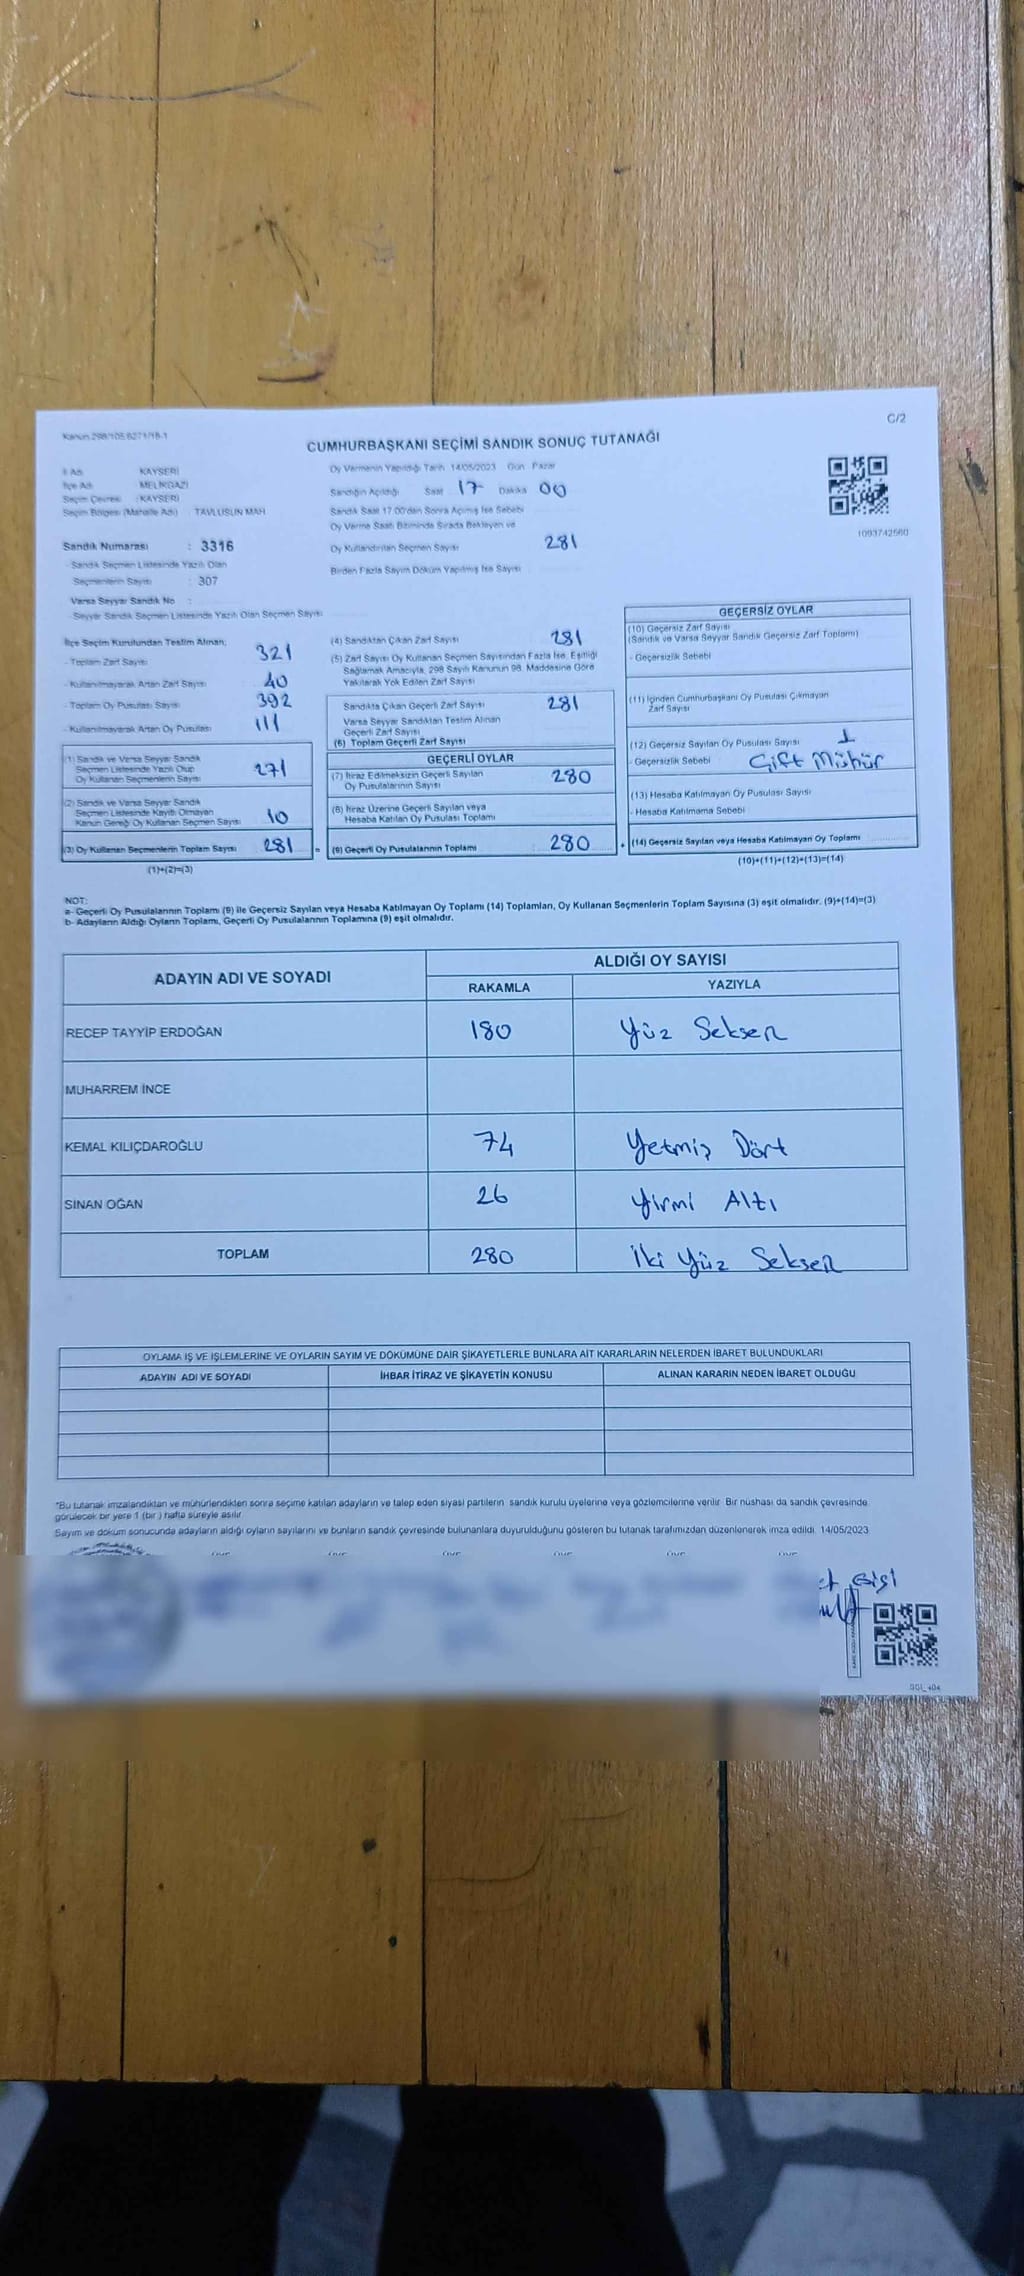 Kanun 298/105,6271/16-1
C/2
CUMHURBAŞKANI SEÇİMİ SANDIK SONUÇ TUTANAĞI
İl Adı KAYSERİ
İlçe Adı MELİKGAZİ
Seçim Çevresi : KAYSERİ
Seçim Bölgesi (Mahalle Adı) : TAVLUSUN MAH
Sandık Numarası : 3316
- Sandık Seçmen Listesinde Yazılı Olan
Seçmenlerin Sayısı : 307
Varsa Seyyar Sandık No :
- Seyyar Sandık Seçmen Listesinde Yazılı Olan Seçmen Sayısı
Oy Vermenin Yapıldığı Tarih 14/05/2023 Gün Pazar
Sandığın Açıldığı Saat 17 Dakika 00
Sandık Saat 17.00'dan Sonra Açılmış İse Sebebi
Oy Verme Saati Bitiminde Sırada Bekleyen ve
Oy Kullandırılan Seçmen Sayısı 281
Birden Fazla Sayım Döküm Yapılmış İse Sayısı
1093742560
İlçe Seçim Kurulundan Teslim Alınan;
- Toplam Zarf Sayısı 321
- Kullanılmayarak Artan Zarf Sayısı 40
- Toplam Oy Pusulası Sayısı 392
- Kullanılmayarak Artan Oy Pusulası 111
(1) Sandık ve Varsa Seyyar Sandık
Seçmen Listesinde Yazılı Olup
Oy Kullanan Seçmenlerin Sayısı 271
(2) Sandık ve Varsa Seyyar Sandık
Seçmen Listesinde Kayıtlı Olmayan
Kanun Gereği Oy Kullanan Seçmen Sayısı 10
(3) Oy Kullanan Seçmenlerin Toplam Sayısı 281 =
(1)+(2)=(3)
(4) Sandıktan Çıkan Zarf Sayısı 281
(5) Zarf Sayısı Oy Kullanan Seçmen Sayısından Fazla İse, Eşitliği
Sağlamak Amacıyla, 298 Sayılı Kanunun 98. Maddesine Göre
Yakılarak Yok Edilen Zarf Sayısı
Sandıkta Çıkan Geçerli Zarf Sayısı 281
Varsa Seyyar Sandıktan Teslim Alınan
Geçerli Zarf Sayısı
(6) Toplam Geçerli Zarf Sayısı
GEÇERLİ OYLAR
(7) İtiraz Edilmeksizin Geçerli Sayılan
Oy Pusulalarının Sayısı 280
(8) İtiraz Üzerine Geçerli Sayılan veya
Hesaba Katılan Oy Pusulası Toplamı
(9) Geçerli Oy Pusulalarının Toplamı : 280 +
GEÇERSİZ OYLAR
(10) Geçersiz Zarf Sayısı
(Sandık ve Varsa Seyyar Sandık Geçersiz Zarf Toplamı)
- Geçersizlik Sebebi
(11) İçinden Cumhurbaşkanı Oy Pusulası Çıkmayan
Zarf Sayısı
(12) Geçersiz Sayılan Oy Pusulası Sayısı 1
- Geçersizlik Sebebi Çift Mühür
(13) Hesaba Katılmayan Oy Pusulası Sayısı
- Hesaba Katılmama Sebebi
(14) Geçersiz Sayılan veya Hesaba Katılmayan Oy Toplamı
(10)+(11)+(12)+(13)=(14)
NOT:
a- Geçerli Oy Pusulalarının Toplamı (9) ile Geçersiz Sayılan veya Hesaba Katılmayan Oy Toplamı (14) Toplamları, Oy Kullanan Seçmenlerin Toplam Sayısına (3) eşit olmalıdır. (9)+(14)=(3)
b- Adayların Aldığı Oyların Toplamı, Geçerli Oy Pusulalarının Toplamına (9) eşit olmalıdır.
ADAYIN ADI VE SOYADI ALDIĞI OY SAYISI
RAKAMLA YAZIYLA
RECEP TAYYİP ERDOĞAN 180 Yüz Seksen
MUHARREM İNCE
KEMAL KILIÇDAROĞLU 74 Yetmiş Dört
SİNAN OĞAN 26 Yirmi Altı
TOPLAM 280 İki Yüz Seksen
OYLAMA İŞ VE İŞLEMLERİNE VE OYLARIN SAYIM VE DÖKÜMÜNE DAİR ŞİKAYETLERLE BUNLARA AİT KARARLARIN NELERDEN İBARET BULUNDUKLARI
ADAYIN ADI VE SOYADI İHBAR İTİRAZ VE ŞİKAYETİN KONUSU ALINAN KARARIN NEDEN İBARET OLDUĞU
*Bu tutanak imzalandıktan ve mühürlendikten sonra seçime katılan adayların ve talep eden siyasi partilerin sandık kurulu üyelerine veya gözlemcilerine verilir. Bir nüshası da sandık çevresinde
görülecek bir yere 1 (bir ) hafta süreyle asılır.
Sayım ve döküm sonucunda adayların aldığı oyların sayılarını ve bunların sandık çevresinde bulunanlara duyurulduğunu gösteren bu tutanak tarafımızdan düzenlenerek imza edildi. 14/05/2023